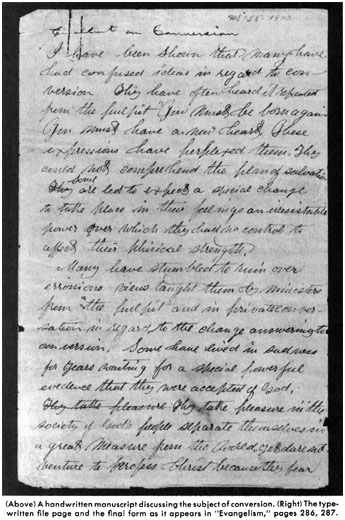 Ms 55 - 1910
on Conversion
I have been shown that many have
had confused ideas in regard to con-
version They have often heard it repeated
from the pulpit "You must be born again
You must have a new heart. These
expressions have perplexed them. They
could not comprehend the plan of salvation
They Some are led to expect a special change
to take place in their feelings an irresistable
power over which they had no control to
affect their phisical strength.
Many have stumbled to ruin over
erronious views taught them by ministers
from "the pulpit" and in private conver-
sation in regard to the change answering to
conversion. Some have lived in sadness
for years waiting for a special powerful
evidence that they were accepted of God.
They take pleasure They take pleasure in the
society of God's people separate themselves in
a great measure from the world, yet dare not
venture to profess Christ because they fear
(Above) A handwritten manuscript discussing the subject of conversion. (Right) The type-
written file page and the final form as it appears in "Evangelism," pages 286, 287.